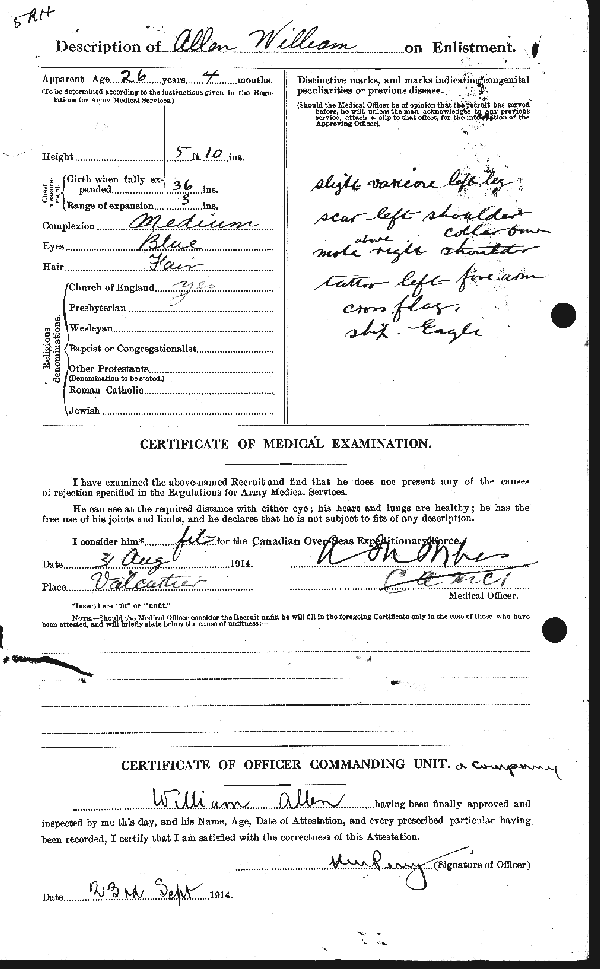 5 RH
Description of Allen William on Enlistment.
Apparent Age 26 years 4 months.
(To be determined according to the instructions given in the Regulations for Army Medical Services.)
Height 5 ft. 10 ins.
Chest measurement.
Girth when fully expanded 36 ins.
Range of expansion 3 ins.
Complexion Medium
Eyes Blue
Hair Fair
Religious denominations.
Church of England yes
Presbyterian
Wesleyan
Baptist or Congregationalist
Other Protestants
(Denomination to be stated.)
Roman Catholic
Jewish
Distinctive marks, and marks indicating congenital
peculiarities or previous disease.
(Should the Medical Officer be of opinion that the recruit has served
before, he will, unless the man acknowledges to any previous
service, attach a slip to that effect, for the information of the
Approving Officer).
slight left leg
scar left shoulder
above collar bone
mole right shoulder
tattoo left forearm
cross flag,
ship - Eagle
CERTIFICATE OF MEDICAL EXAMINATION.
I have examined the above-named Recruit and find that he does not present any of the causes
of rejection specified in the Regulations for Army Medical Services.
He can see at the required distance with either eye; his heart and lungs are healthy; he has the
free use of his joints and limbs, and he declares that he is not subject to fits of any description.
I consider him* fit for the Canadian Over-Seas Expeditionary Force.
Date Aug 1914.
Place Valcartier
Medical Officer.
*Insert here "fit" or "unfit."
NOTE.—Should the Medical Officer consider the Recruit unfit, he will fill in the foregoing Certificate only in the case of those who have
been attested, and will briefly state below the cause of unfitness:—
CERTIFICATE OF OFFICER COMMANDING UNIT. a company
William Allen having been finally approved and
inspected by me this day, and his Name, Age, Date of Attestation, and every prescribed particular having
been recorded, I certify that I am satisfied with the correctness of this Attestation.
(Signature of Officer)
Date 23rd Sept 1914.